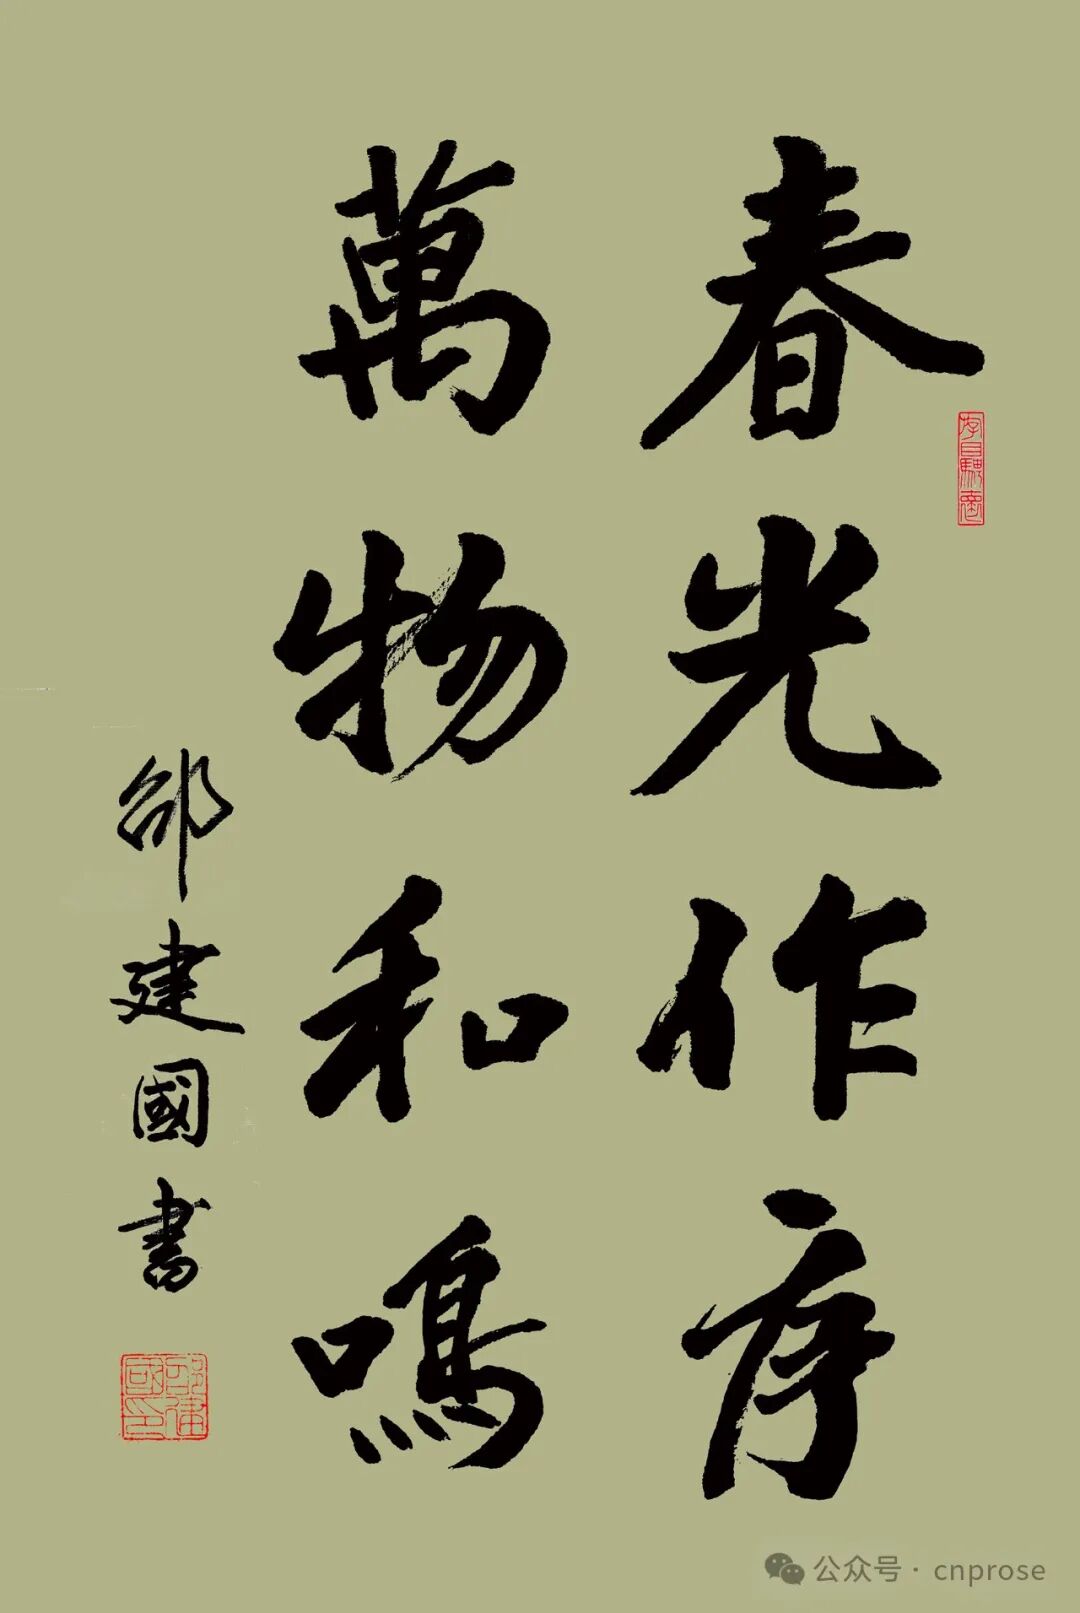 春光作序
萬物和鳴
邵建國書
邵建國印
公众号 · cnprose